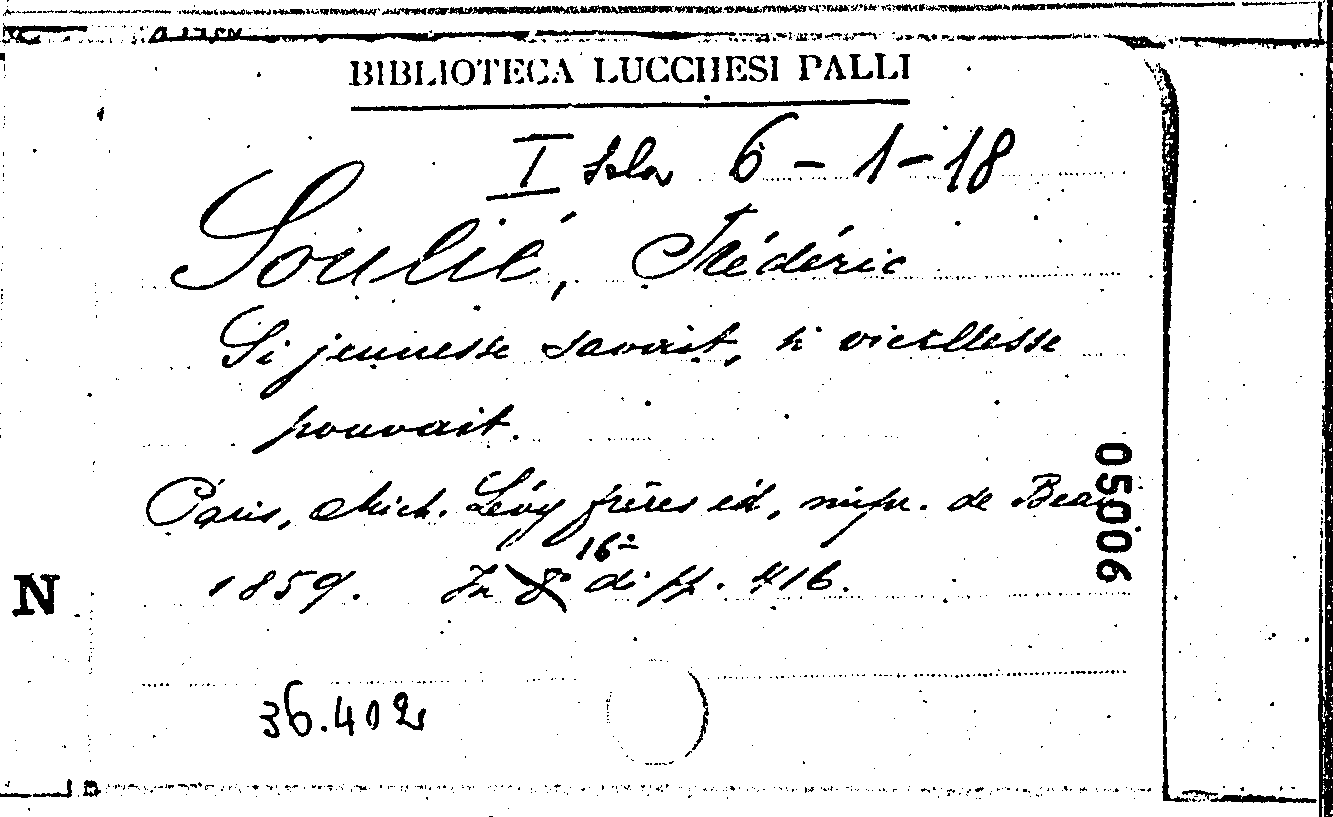 BIBLIOTECA LUCCHESI PALLI
I Sala 6-1-18
Soulié, Frédéric
Si jeunesse savait, si vieillesse
pouvait.
Paris, Mich. Lévy frères éd, impr. de Beau
16º
1859. In 8º di pp. 416.
N
36.402
05006